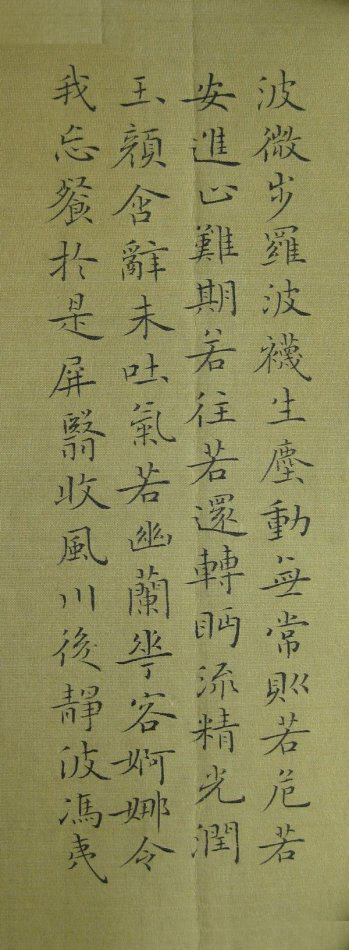 波微步羅波襪生塵動無常則若危若
安進止難期若往若還轉眄流精光潤
玉顏含辭未吐氣若幽蘭華容婀娜令
我忘餐於是屏翳收風川後靜波馮夷